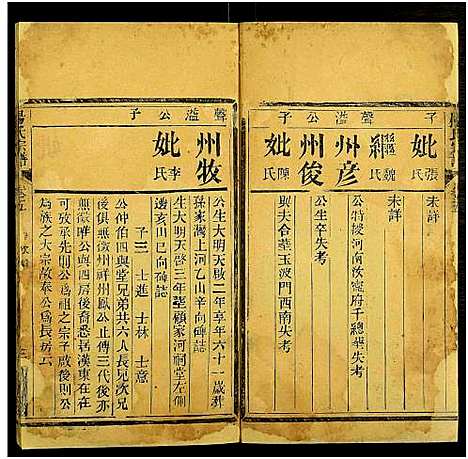 子
聲溢公子
妣張氏
未詳
繼魏氏
未詳
州彥
公特授河南汝寧府千總葬失考
州俊
公生卒失考
妣陳氏
與夫合葬玉波門西南失考
聲溢公子
州牧
公生大明天啟二年享年六十一歲葬
孫家灣上河乙山辛向碑誌
妣李氏
生大明天啟三年葬顧家河祠堂左側
邊亥山巳向碑誌
子三 士進 士林 士意
公仲伯四與堂兄弟共六人長兄次兄
無徵州祥州鳳公止傳三代後亦
無徵唯公與四房後裔悉居漢東在在
可攷承先制公爲祖之宗子啟後則公
爲族之大宗故奉公爲長房云